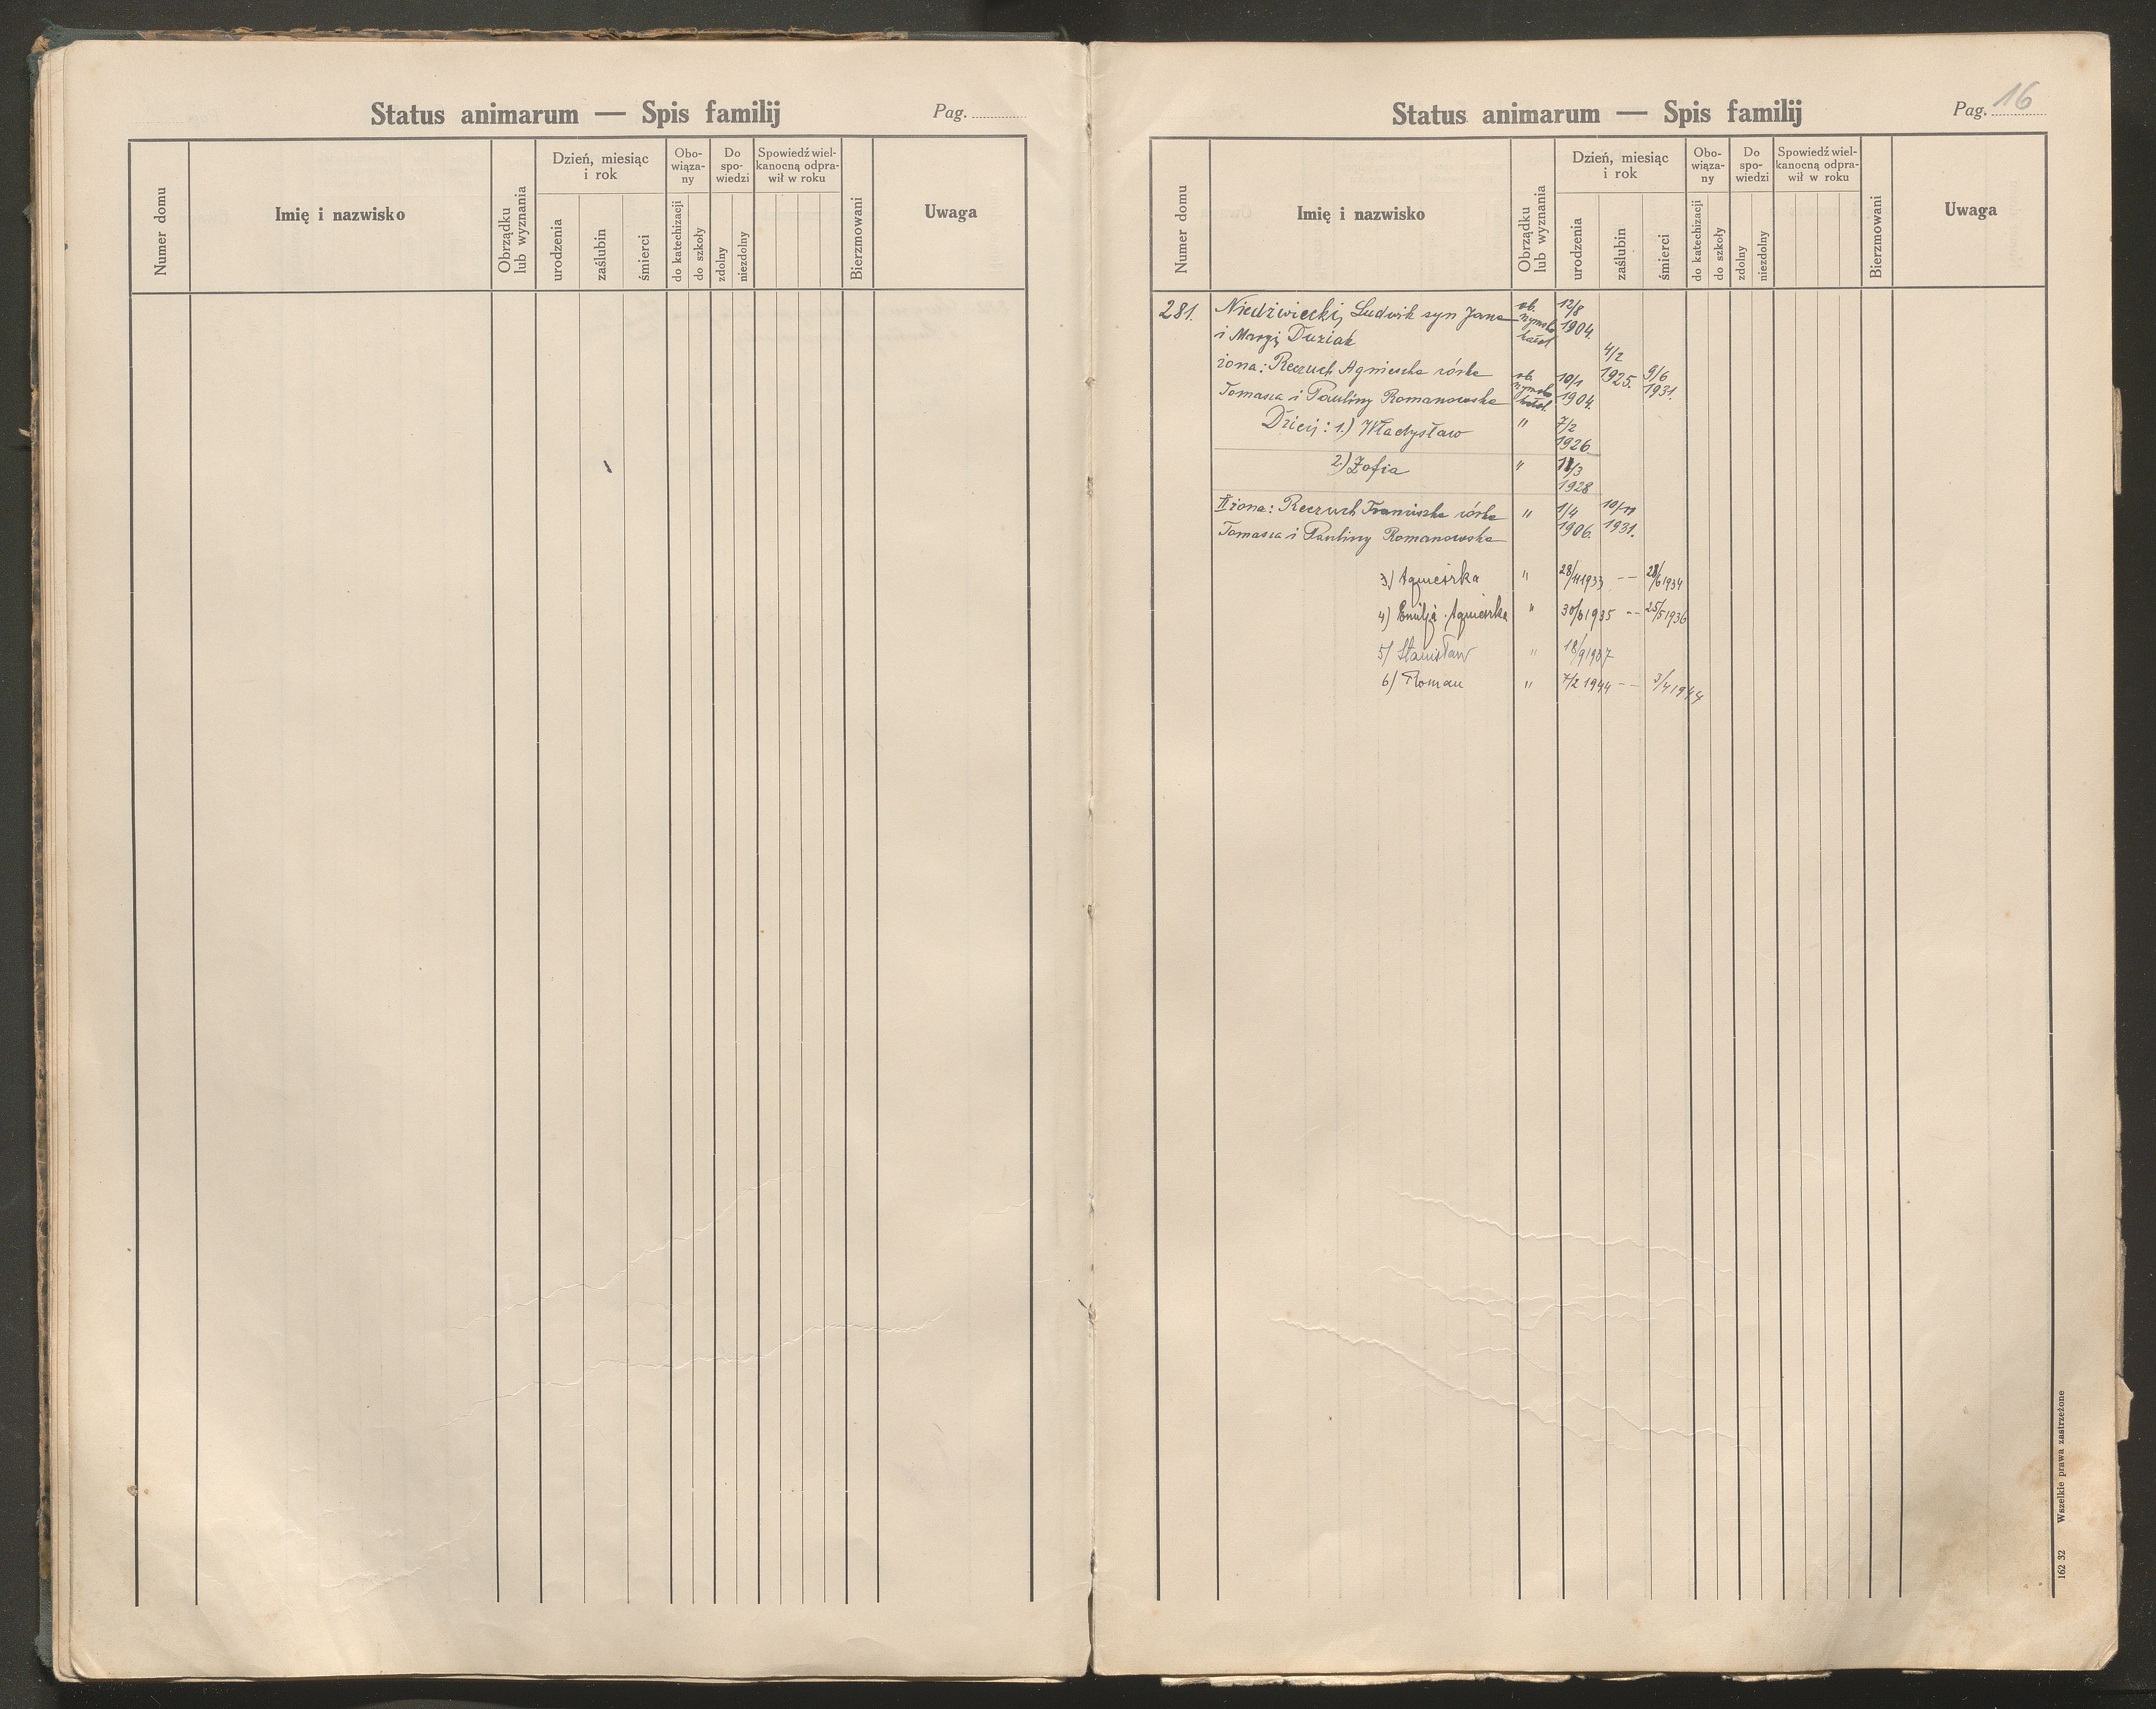 Status animarum — Spis familij
Pag.
Numer domu
Imię i nazwisko
Obrządku lub wyznania
Dzień, miesiąc i rok
urodzenia
zaślubin
śmierci
Obo-
wiąza-
ny
do katechizacji
do szkoły
Do
spo-
wiedzi
zdolny
niezdolny
Spowiedź wiel-
kanocną odpra-
wił w roku
Bierzmowani
Uwaga
Status animarum — Spis familij
Pag. 16
Numer domu
Imię i nazwisko
Obrządku lub wyznania
Dzień, miesiąc i rok
urodzenia
zaślubin
śmierci
Obo-
wiąza-
ny
do katechizacji
do szkoły
Do
spo-
wiedzi
zdolny
niezdolny
Spowiedź wiel-
kanocną odpra-
wił w roku
Bierzmowani
Uwaga
281. Niedźwiecki, Ludwik syn Jana ob. rzymsko katol. 12/8 1904.
i Marji Duziak
żona: Reczuch Agnieszka córka 4/2 1925. 9/6 1931.
Tomasza i Pauliny Romanowska ob. rzymsko katol. 10/1 1904.
Dzieci: 1.) Władysław " 7/2 1926
2.) Zofia " 11/3 1928
II żona: Reczuch Franciszka córka " 1/4 1906. 10/11 1931.
Tomasza i Pauliny Romanowska
3) Agnieszka " 28/11 1933 -- 28/6 1934
4) Emilja Agnieszka " 30/6 1935 -- 25/5 1936
5) Stanisław " 18/9 1937
6) Roman " 7/2 1944 -- 3/4 1944
162 32 Wszelkie prawa zastrzeżone